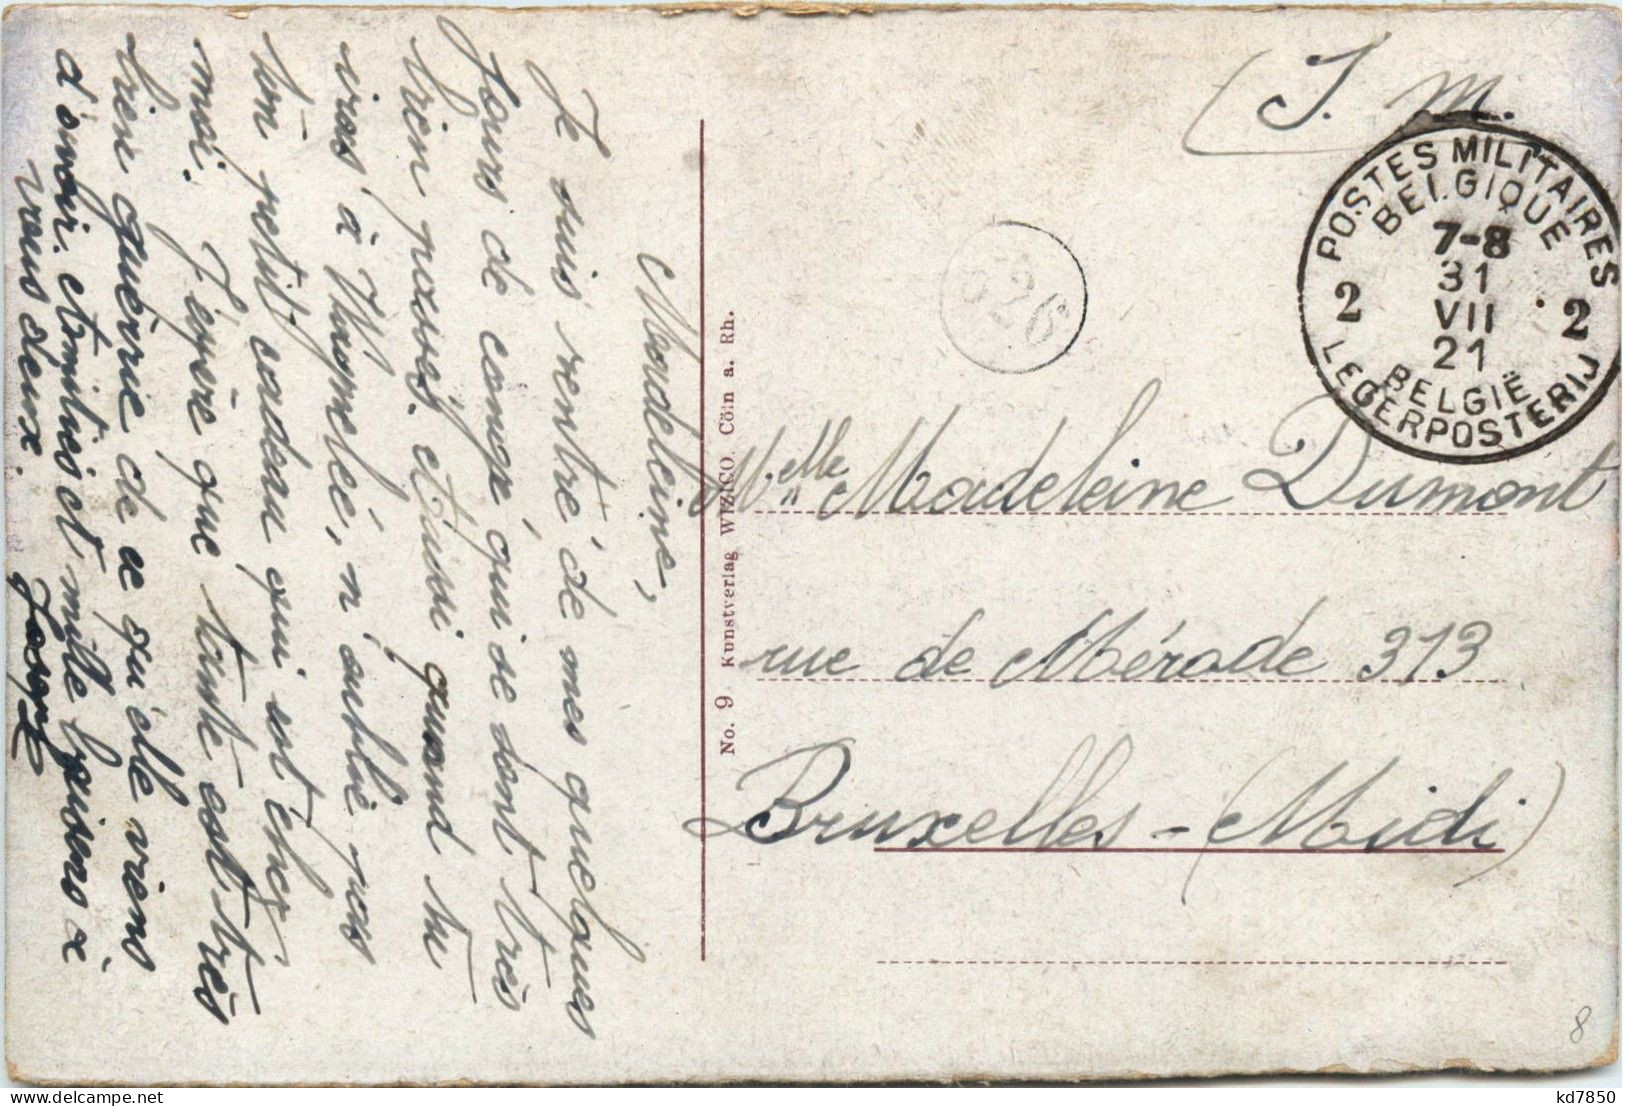 Madeleine,
Je suis rentré de mes quelques
jours de congé qui se sont très
bien passés. et aussi quand tu
iras à, n'oublie pas
ton petit cadeau qui est chez
moi. J'espère que tante est très
bien guérie de ce qu'elle viens
d'avoir. et mille baisers à
vous deux.
No. 9 Kunstverlag WIZICO. Cöln a. Rh.
(S. M.
POSTES MILITAIRES
BELGIQUE
7-8
31
VII
21
2 2
BELGIË
LEGERPOSTERIJ
326
Melle Madeleine Dumont
rue de Mérode 313
Bruxelles - (Midi)
8
kd7850